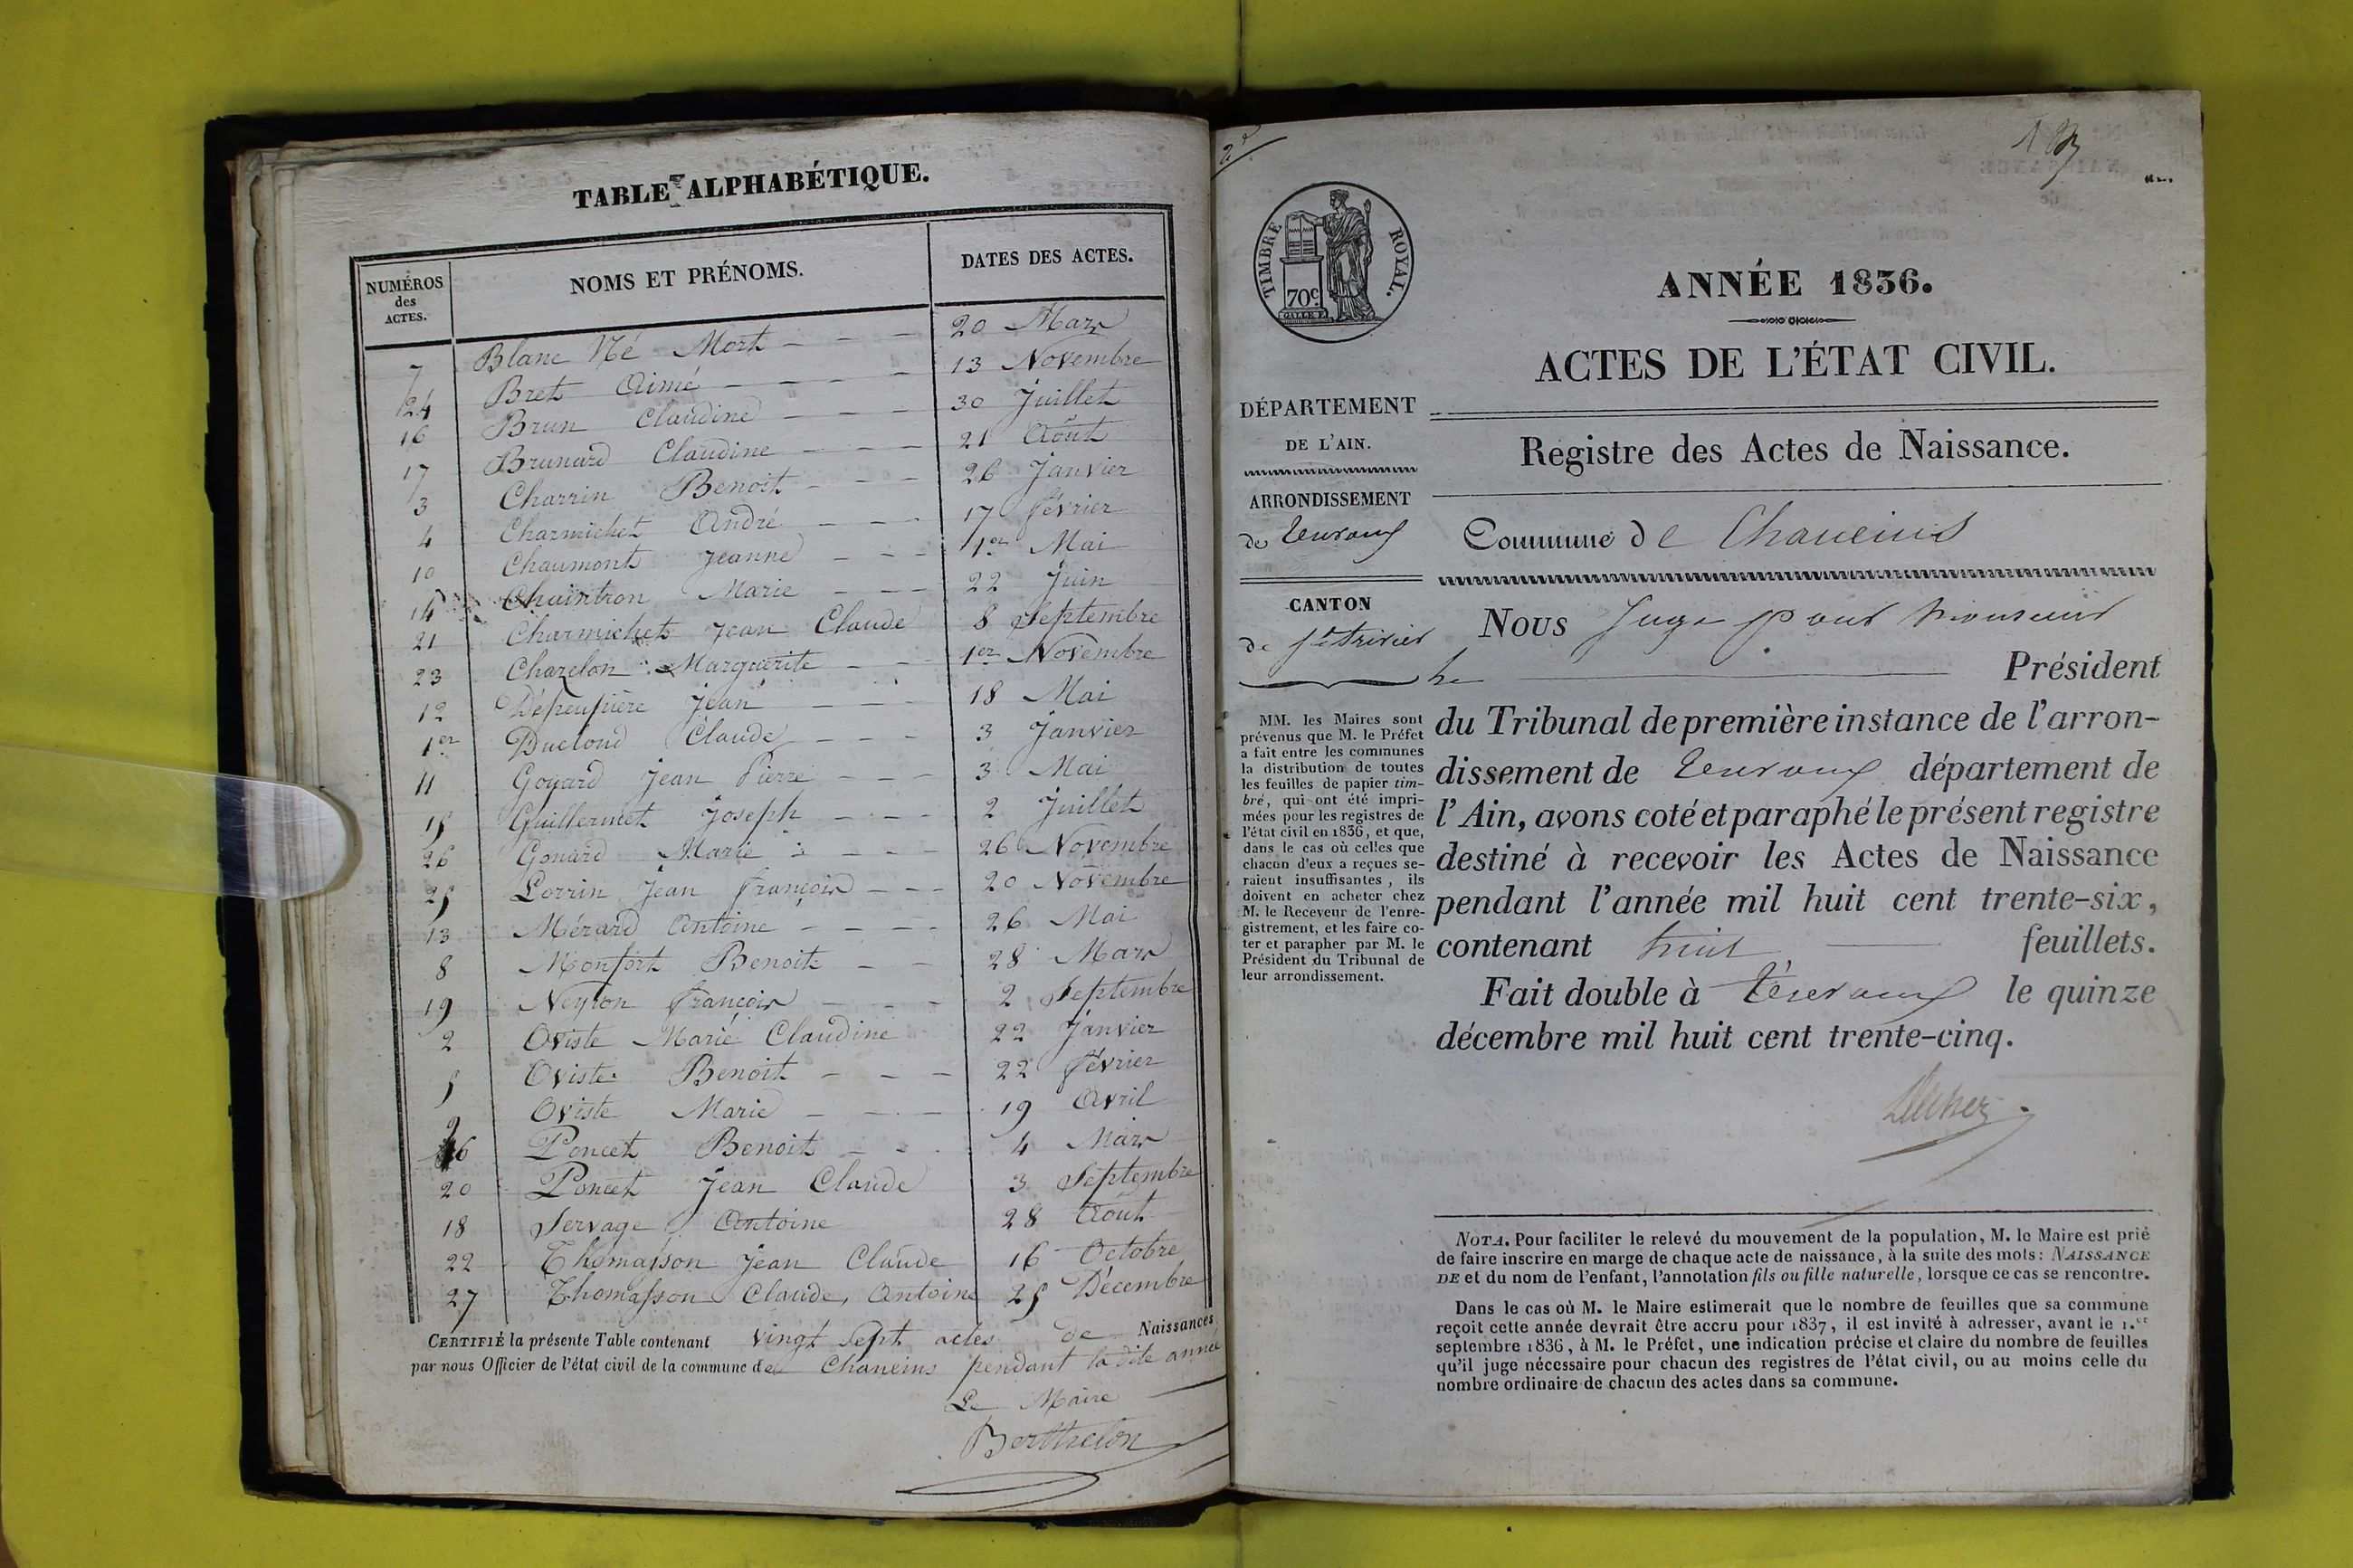 TABLE ALPHABÉTIQUE.
NUMÉROS des ACTES. NOMS ET PRÉNOMS. DATES DES ACTES.
7 Blanc Né Mort 20 Mars
24 Bret Aimé 13 Novembre
16 Brun Claudine 30 Juillet
17 Brunard Claudine 21 Août
3 Charrin Benoit 26 Janvier
4 Charmichet André 17 février
10 Chaumont Jeanne 1er Mai
14 Chaintron Marie 22 Juin
21 Charmichet Jean Claude 8 Septembre
23 Charelon Marguerite 1er Novembre
12 Dépeupière Jean 18 Mai
1er Ducloud Claude 3 Janvier
11 Goyard Jean Pierre 3 Mai
15 Guillermet Joseph 2 Juillet
26 Gonard Marie 26 Novembre
25 Lorrin Jean François 20 Novembre
13 Mérard Antoine 26 Mai
8 Monfort Benoit 28 Mars
19 Neyron François 2 Septembre
2 Oviste Marie Claudine 22 Janvier
5 Oviste Benoit 22 février
9 Oviste Marie 19 Avril
6 Poncet Benoit 4 Mars
20 Poncet Jean Claude 3 Septembre
18 Servage Antoine 28 Août
22 Thomasson Jean Claude 16 Octobre
27 Thomasson Claude Antoine 25 Décembre
CERTIFIÉ la présente Table contenant vingt sept actes de Naissances
par nous Officier de l'état civil de la commune de Chaneins pendant la dite année
Le Maire
Berthelon
2d
TIMBRE ROYAL.
70c
ANNÉE 1836.
ACTES DE L'ÉTAT CIVIL.
DÉPARTEMENT
DE L'AIN.
Registre des Actes de Naissance.
ARRONDISSEMENT
de Trévoux
Commune de Chaneins
CANTON
de St trivier
Nous Juge pour Monsieur
le Président
du Tribunal de première instance de l'arron-
dissement de Trévoux département de
l'Ain, avons coté et paraphé le présent registre
destiné à recevoir les Actes de Naissance
pendant l'année mil huit cent trente-six,
contenant huit feuillets.
Fait double à Trévoux le quinze
décembre mil huit cent trente-cinq.
MM. les Maires sont
prévenus que M. le Préfet
a fait entre les communes
la distribution de toutes
les feuilles de papier tim-
bré, qui ont été impri-
mées pour les registres de
l'état civil en 1836, et que,
dans le cas où celles que
chacun d'eux a reçues se-
raient insuffisantes, ils
doivent en acheter chez
M. le Receveur de l'enre-
gistrement, et les faire co-
ter et parapher par M. le
Président du Tribunal de
leur arrondissement.
NOTA. Pour faciliter le relevé du mouvement de la population, M. le Maire est prié
de faire inscrire en marge de chaque acte de naissance, à la suite des mots: NAISSANCE
DE et du nom de l'enfant, l'annotation fils ou fille naturelle, lorsque ce cas se rencontre.
Dans le cas où M. le Maire estimerait que le nombre de feuilles que sa commune
reçoit cette année devrait être accru pour 1837, il est invité à adresser, avant le 1.er
septembre 1836, à M. le Préfet, une indication précise et claire du nombre de feuilles
qu'il juge nécessaire pour chacun des registres de l'état civil, ou au moins celle du
nombre ordinaire de chacun des actes dans sa commune.